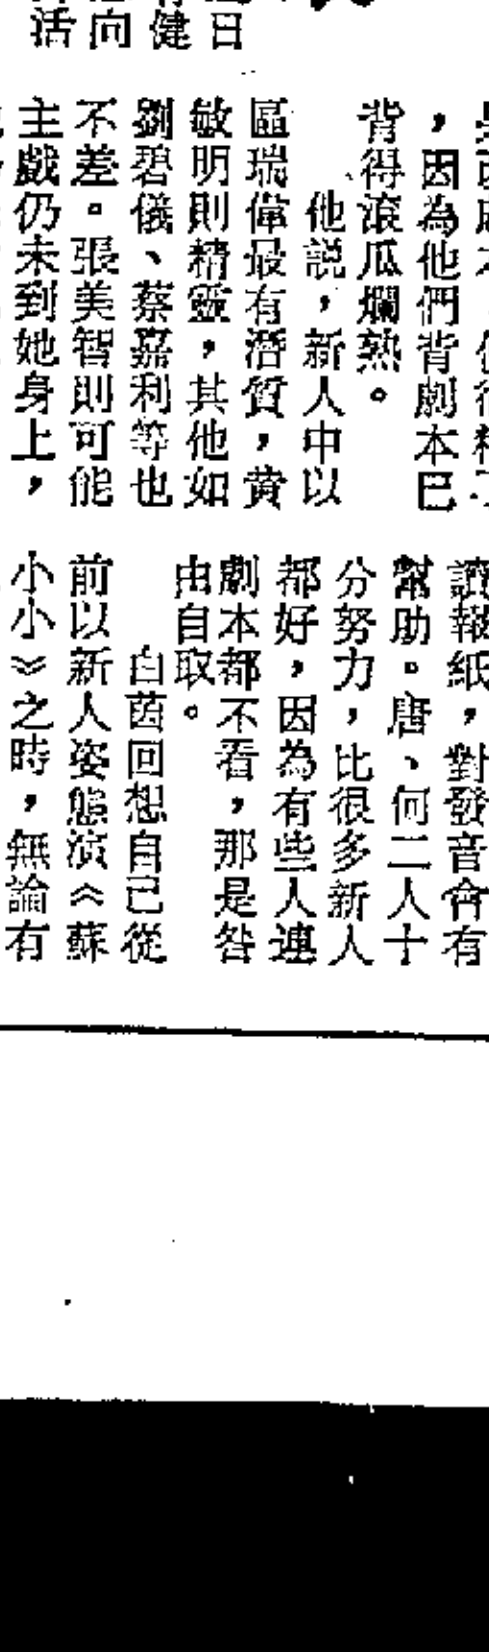 日
健
向
活
，因為他們背劇本巳
背得滾瓜爛熟。
他説，新人中以
區瑞偉最有潛質，黄
敏明則精靈，其他如
劉碧儀、蔡嘉利等也
不差。張美智則可能
主戲仍未到她身上，
讀報紙，對發音會有
幫助。唐、何二人十
分努力，比很多新人
都好，因為有些人連
劇本都不看，那是咎
由自取。
白茵回想自己從
前以新人姿態演《蘇
小小》之時，無論有